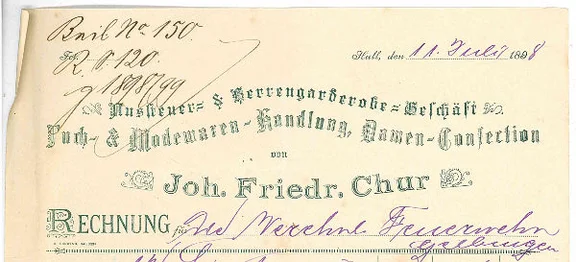 Beil No 150.
R. N. 120.
1898/99
Hall, den 11. Juli 1898
Aussteuer- & Herrengarderobe-Geschäft
Tuch- & Modewaren-Handlung, Damen-Confection
von
Joh. Friedr. Chur
RECHNUNG für Feuerwehr